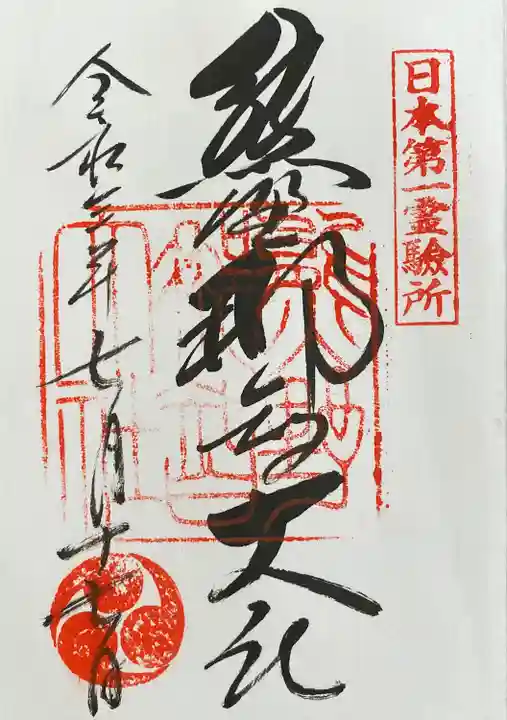 日本第一霊験所
熊野那智大社
令和元年七月十七日